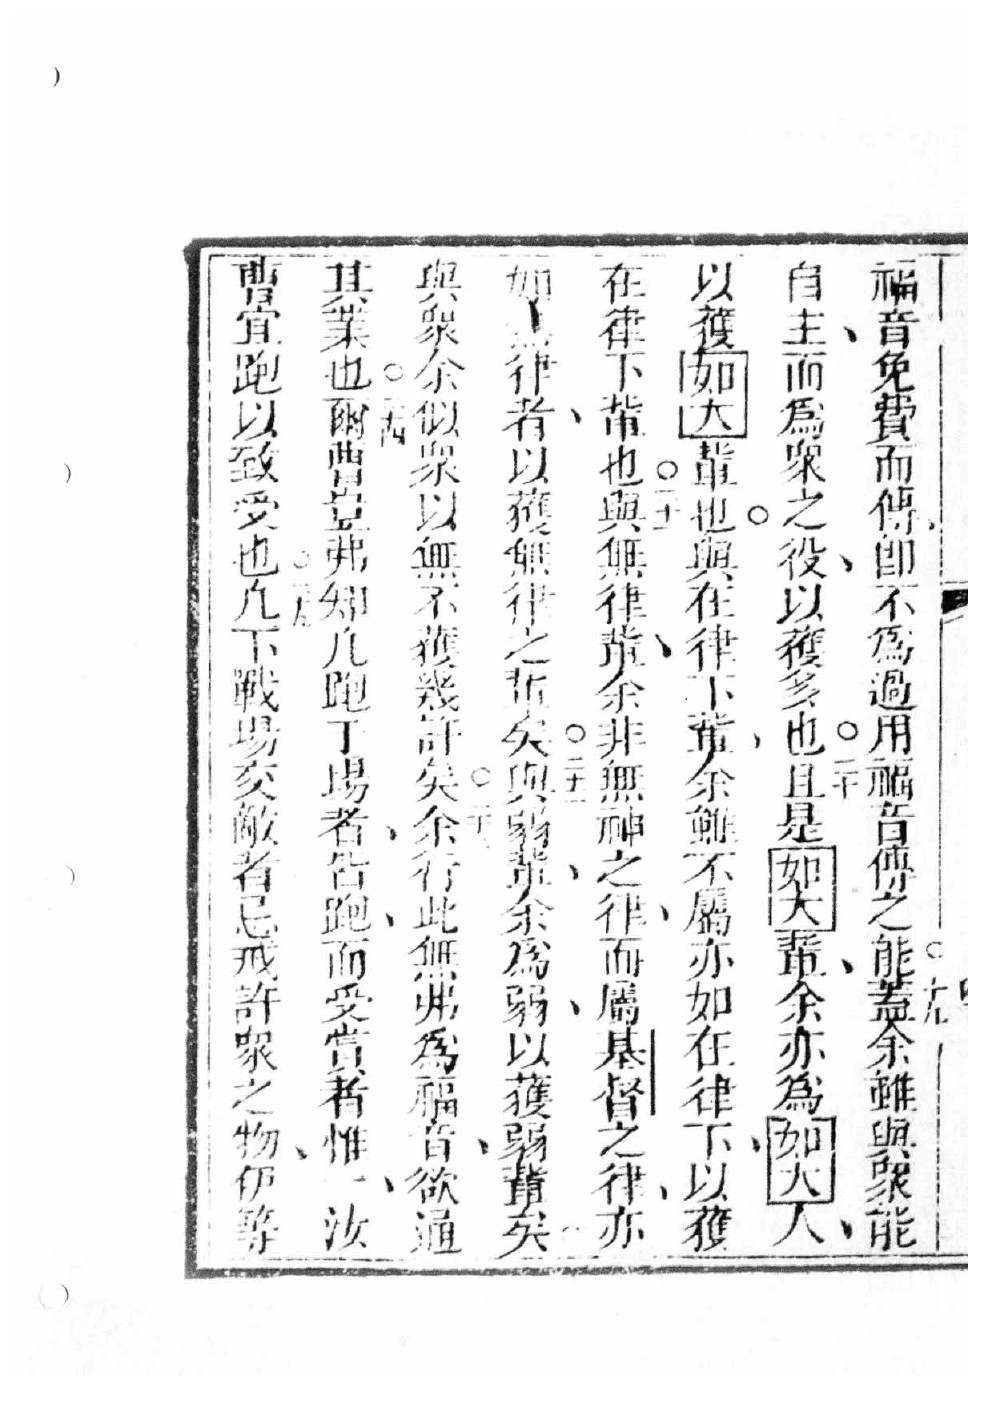 福音免費而傳、卽不爲過用福音傳之能○十九蓋余雖與眾能
自主、而爲眾之役、以獲多也○二十且是如大輩、余亦爲如大人、
以獲如大輩也○與在律下輩、余雖不屬亦如在律下、以獲
在律下輩也○二十一與無律輩、余非無神之律、而屬基督之律、亦
如無律者、以獲無律之輩矣○二十二與弱輩、余爲弱、以獲弱輩矣
與眾余似眾以無不獲幾許矣○二十三余行此無弗爲福音、欲通
其業也○二十四爾曹豈弗知凡跑于場者、皆跑、而受賞者惟一、汝
曹宜跑以致受也○二十五凡下戰場交敵者忌戒許眾之物、伊等